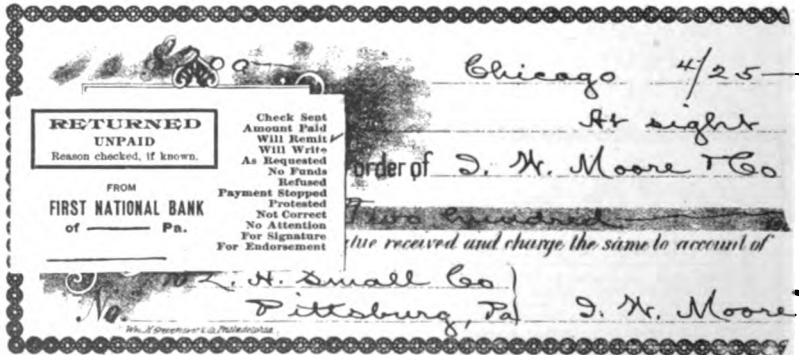 Chicago 4/25
At sight
order of J. W. Moore & Co
Two hundred
value received and charge the same to account of
L. H. Small Co
Pittsburg, Pa J. W. Moore
No.
RETURNED
UNPAID
Reason checked, if known.
FROM
FIRST NATIONAL BANK
of Pa.
Check Sent
Amount Paid
Will Remit
Will Write
As Requested
No Funds
Refused
Payment Stopped
Protested
Not Correct
No Attention
For Signature
For Endorsement